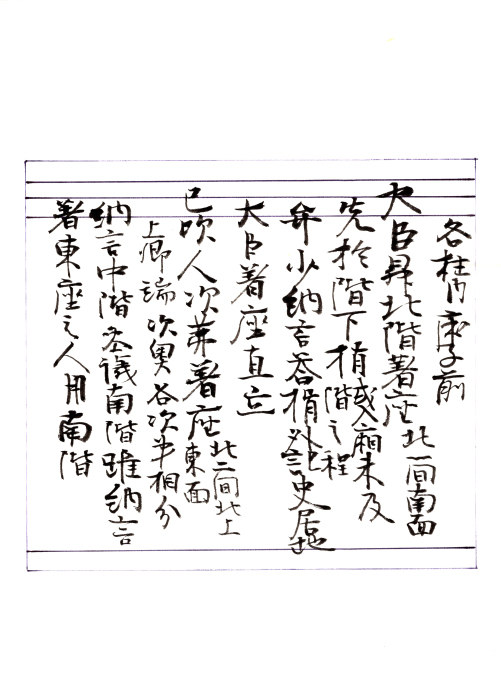 各柱内壺子前
大臣昇北階著座北一間南面
先於階下揖残階之程廂未及
弁少納言答揖外記史居地
大臣著座直亡
已次人次第著座北二間北上東面
上卿端次奥各次第相分
納言中階参議南階雖納言
著東座之人用南階